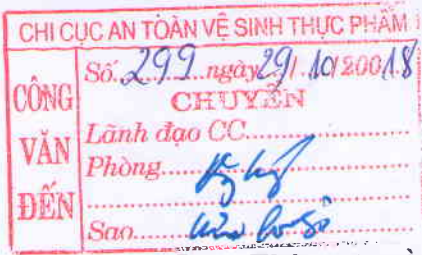 CHI CỤC AN TOÀN VỆ SINH THỰC PHẨM
CÔNG VĂN ĐẾN
Số 299 ngày 29/10/20018
CHUYỂN
Lãnh đạo CC
Phòng
Sao